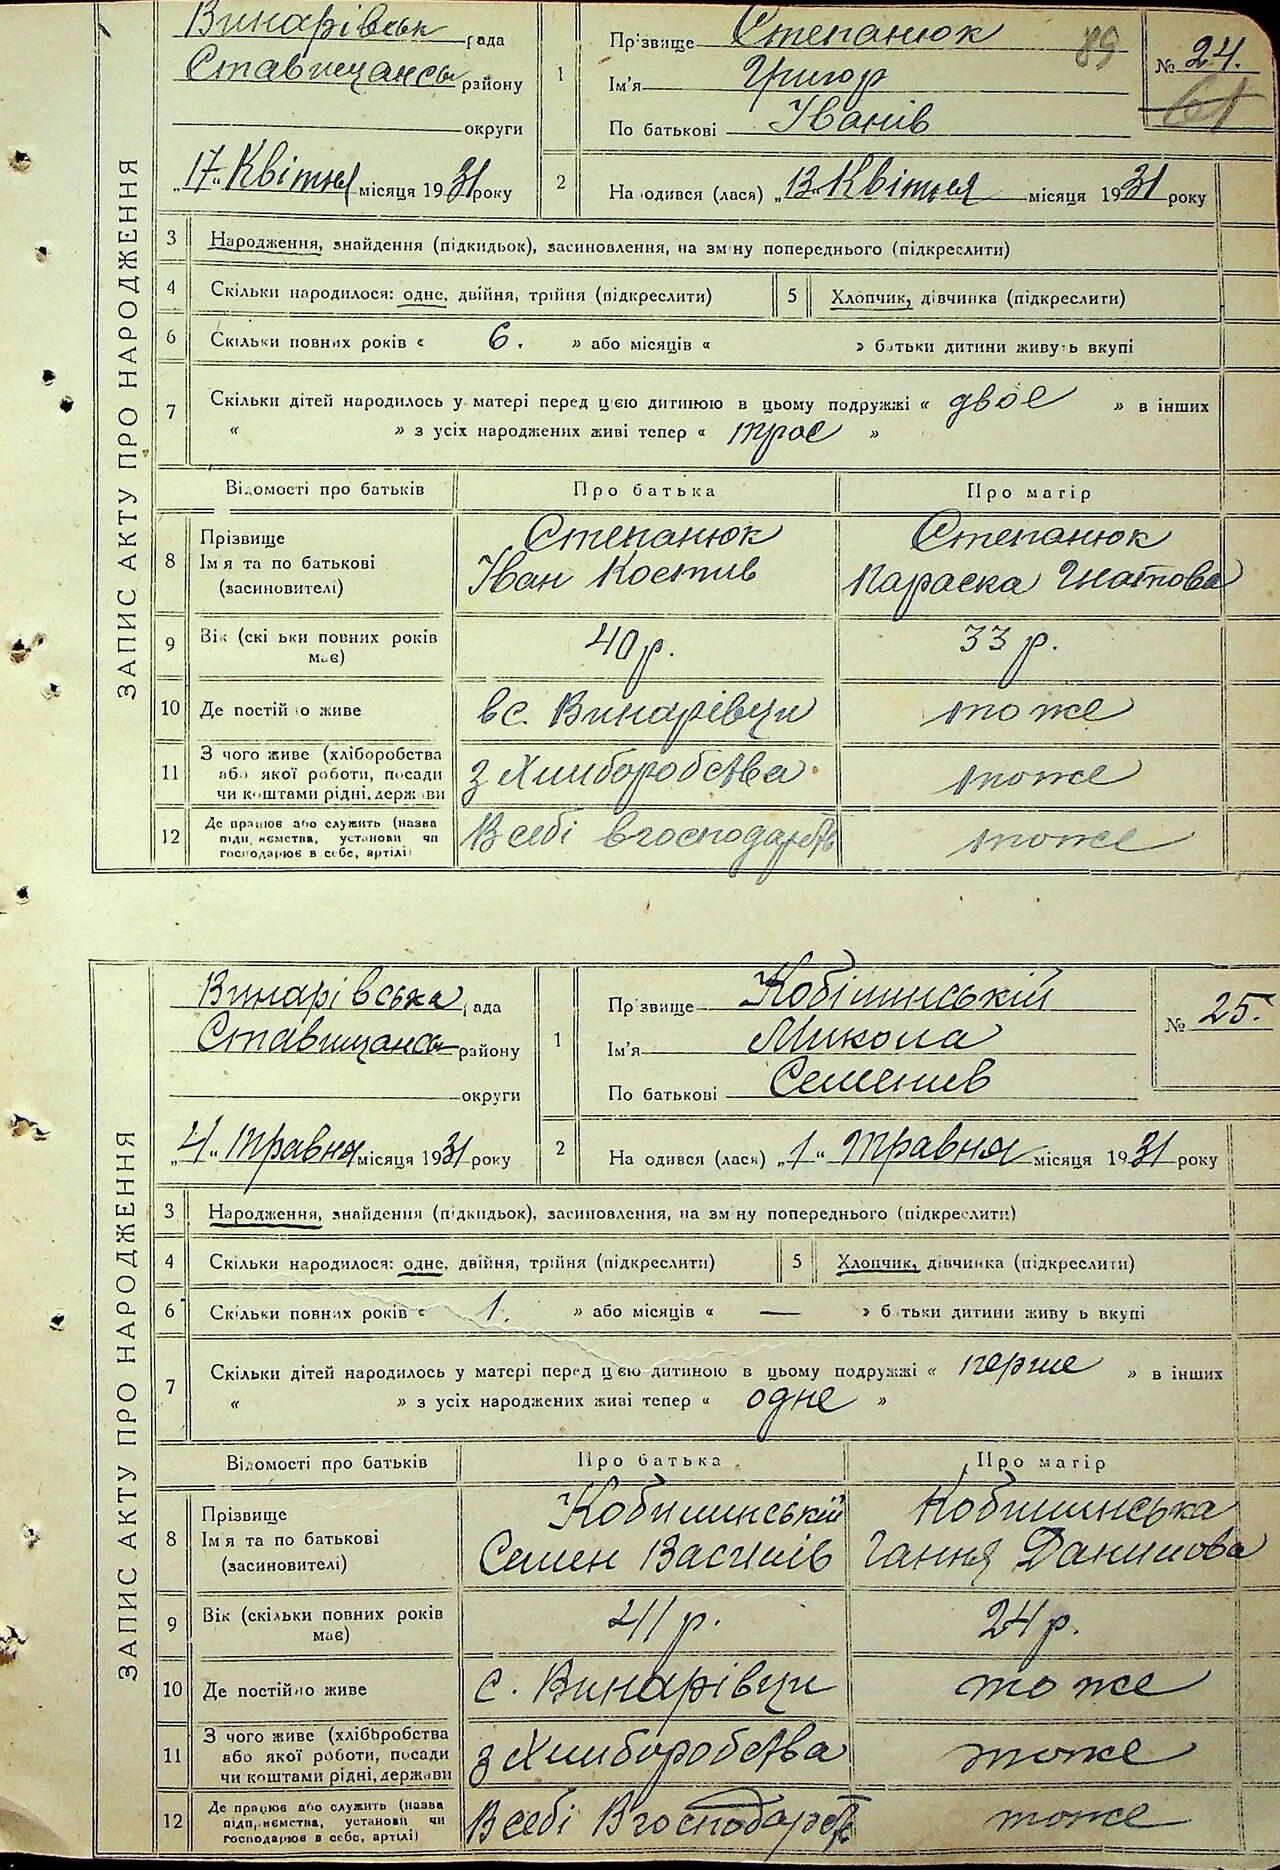 ЗАПИС АКТУ ПРО НАРОДЖЕННЯ
Винарівськ рада
Ставищансь району
округи
„17“ Квітня місяця 1931 року
1
Прізвище Степанюк
Ім'я Григор
По батькові Іванів
89
№ 24.
61
2
Народився (лася) „13“ Квітня місяця 1931 року
3 Народження, знайдення (підкидьок), засиновлення, на зміну попереднього (підкреслити)
4 Скільки народилося: одне, двійня, трійня (підкреслити) 5 Хлопчик, дівчинка (підкреслити)
6 Скільки повних років « 6. » або місяців « » батьки дитини живуть вкупі
7 Скільки дітей народилось у матері перед цією дитиною в цьому подружжі « двоє » в інших
« » з усіх народжених живі тепер « троє »
Відомості про батьків Про батька Про матір
8 Прізвище Степанюк Степанюк
Ім'я та по батькові Іван Костів Параска Гнатова
(засиновителі)
9 Вік (скільки повних років має) 40 р. 33 р.
10 Де постійно живе в с. Винарівци тоже
11 З чого живе (хліборобства
або якої роботи, посади з Хлиборобства тоже
чи коштами рідні, держави
12 Де працює або служить (назва
підприємства, установи чи В себі в господарств тоже
господарює в себе, артілі)
ЗАПИС АКТУ ПРО НАРОДЖЕННЯ
Винарівська рада
Ставищансь району
округи
„4“ травня місяця 1931 року
1
Прізвище Кобішинській
Ім'я Микола
По батькові Семенив
№ 25.
2
Народився (лася) „1“ травня місяця 1931 року
3 Народження, знайдення (підкидьок), засиновлення, на зміну попереднього (підкреслити)
4 Скільки народилося: одне, двійня, трійня (підкреслити) 5 Хлопчик, дівчинка (підкреслити)
6 Скільки повних років « 1. » або місяців « — » батьки дитини живуть вкупі
7 Скільки дітей народилось у матері перед цією дитиною в цьому подружжі « перше » в інших
« » з усіх народжених живі тепер « одне »
Відомості про батьків Про батька Про матір
8 Прізвище Кобишинській Кобишинська
Ім'я та по батькові Семен Василів Гання Данилова
(засиновителі)
9 Вік (скільки повних років має) 41 р. 24 р.
10 Де постійно живе с. Винарівци тоже
11 З чого живе (хліборобства
або якої роботи, посади з Хлиборобства тоже
чи коштами рідні, держави
12 Де працює або служить (назва
підприємства, установи чи В себі В господарств тоже
господарює в себе, артілі)